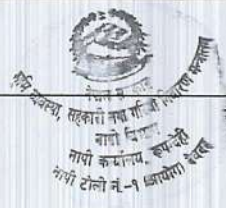 नेपाल सरकार
भूमि व्यवस्था, सहकारी तथा गरिबी निवारण मन्त्रालय
नापी विभाग
नापी कार्यालय, रूपन्देही
नापी टोली नं.-१ (आयोग)